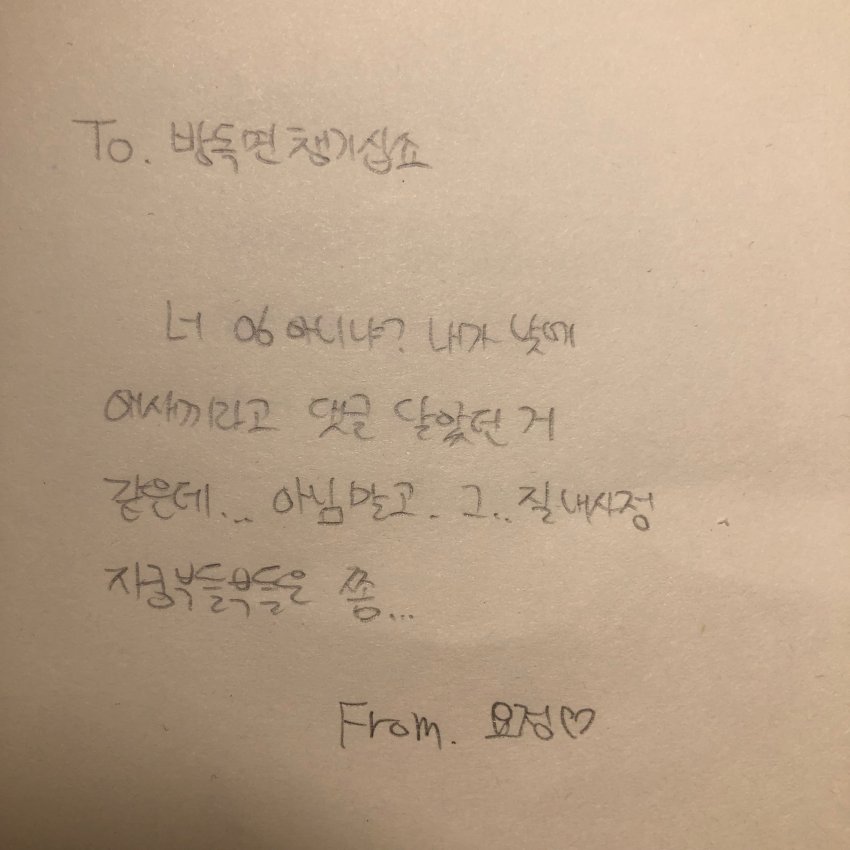 To. 방독면챙기십쇼
너 06 아니냐? 내가 낮에
애사끼라고 댓글 달았던 거
같은데... 아님말고. 그.. 질내사정
자궁부들부들은 쫌...
From. 요정♡